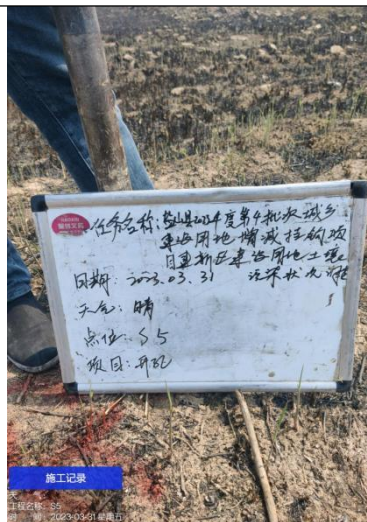 任务名称:盐山县2023年度第4批次城乡
建设用地增减挂钩项
目建新区建设用地土壤
污染状况调查
日期:2023.03.31
天气:晴
点位:S5
项目:开孔
施工记录
工程名称:S5
时 间:2023-03-31 星期五